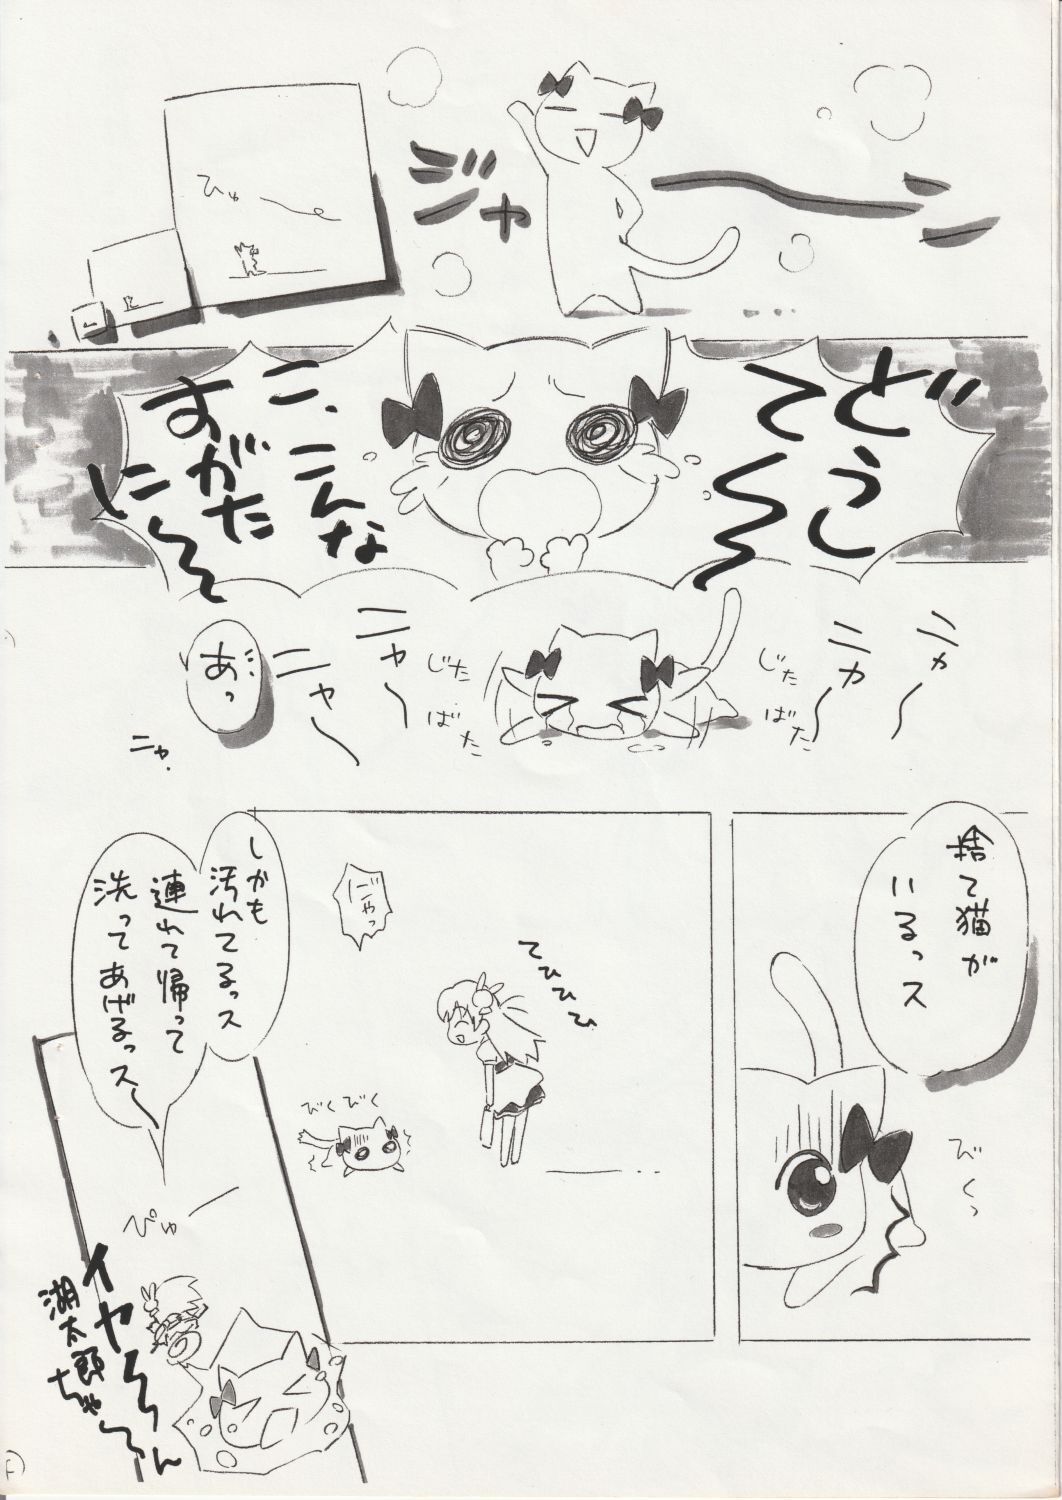 ジャーン
ひゅー
どうし
て〜〜
こ、こんな
すがた
に〜〜
ニャ〜
ニャ〜
ニャ〜
ニャ〜
じた
ばた
じた
ばた
あっ
ニャ.
捨て猫が
いるっス
びくっ
てひひひ
にゃっ
びくびく
しかも
汚れてるっス
連れて帰って
洗ってあげるっス〜
ぴゅー
イヤ〜〜ん
湖太郎ちゃ〜ん